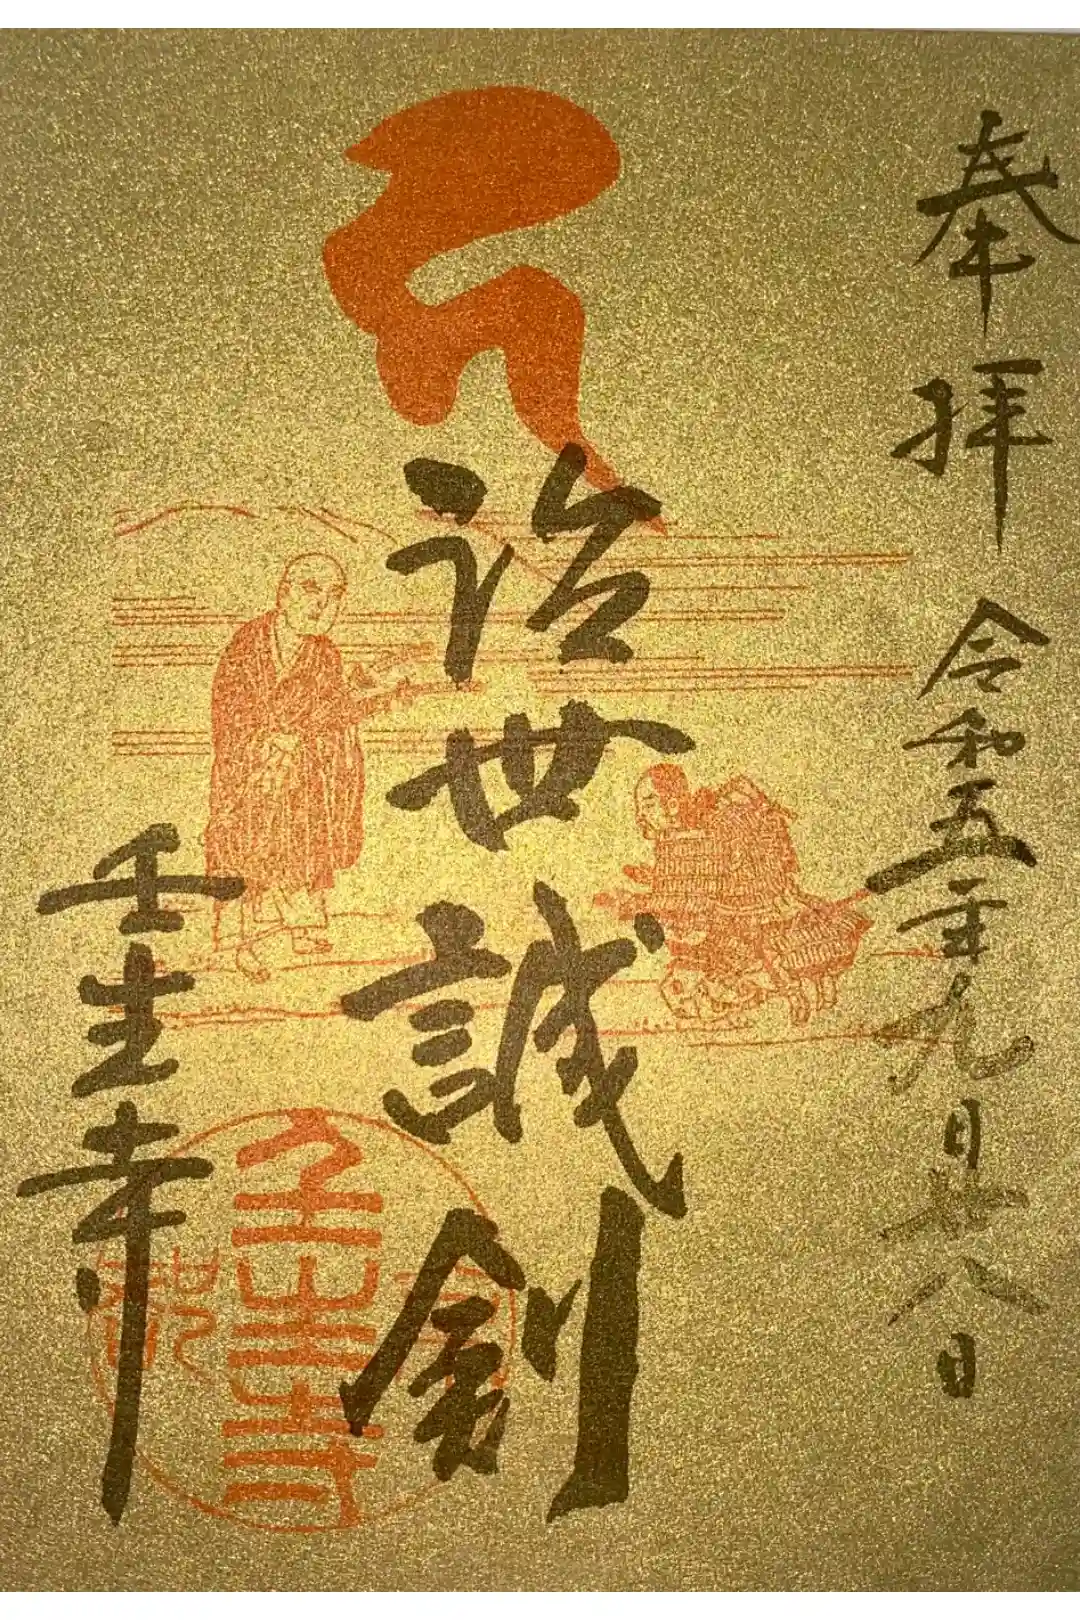 奉拝 令和五年九月廿八日
治世誠剣
壬生寺
壬生寺